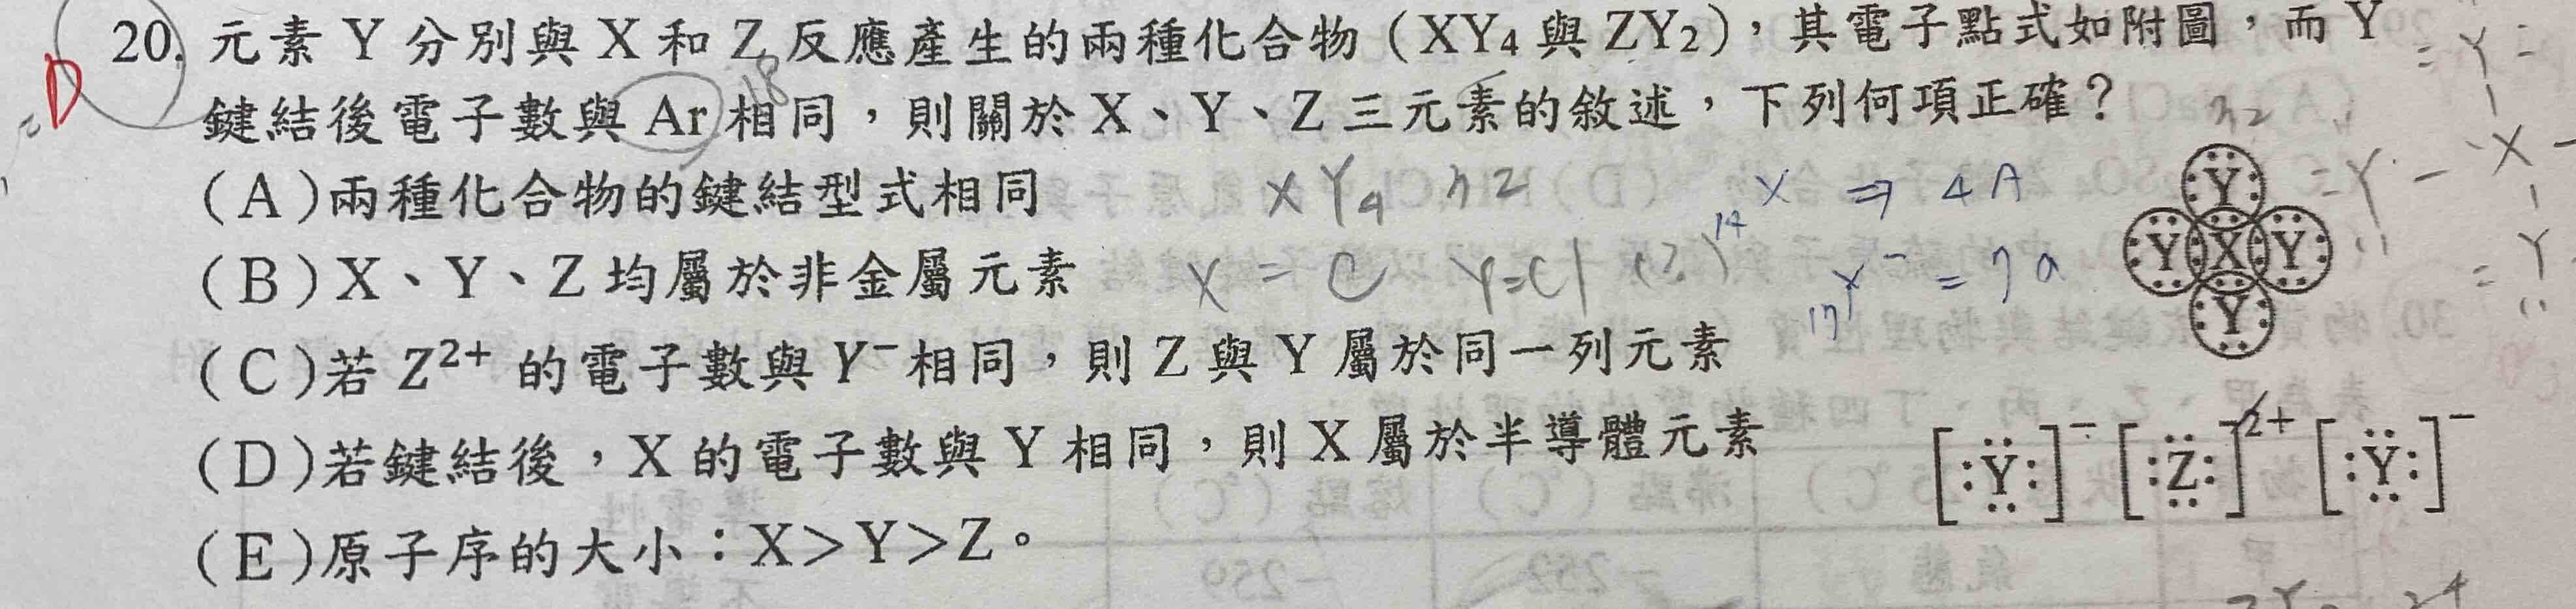 20. 元素 Y 分別與 X 和 Z 反應產生的兩種化合物（XY₄ 與 ZY₂），其電子點式如附圖，而 Y
D
鍵結後電子數與 Ar 相同，則關於 X、Y、Z 三元素的敘述，下列何項正確？
18
(A)兩種化合物的鍵結型式相同
XY₄
X ⇒ 4A
(B)X、Y、Z 均屬於非金屬元素
X = C Y=Cl (?)
17Y⁻ = 7a
Y
Y X Y
Y
(C)若 Z²⁺ 的電子數與 Y⁻ 相同，則 Z 與 Y 屬於同一列元素
(D)若鍵結後，X 的電子數與 Y 相同，則 X 屬於半導體元素
[:Y:]⁻ [:Z:]²⁺ [:Y:]⁻
(E)原子序的大小：X＞Y＞Z。